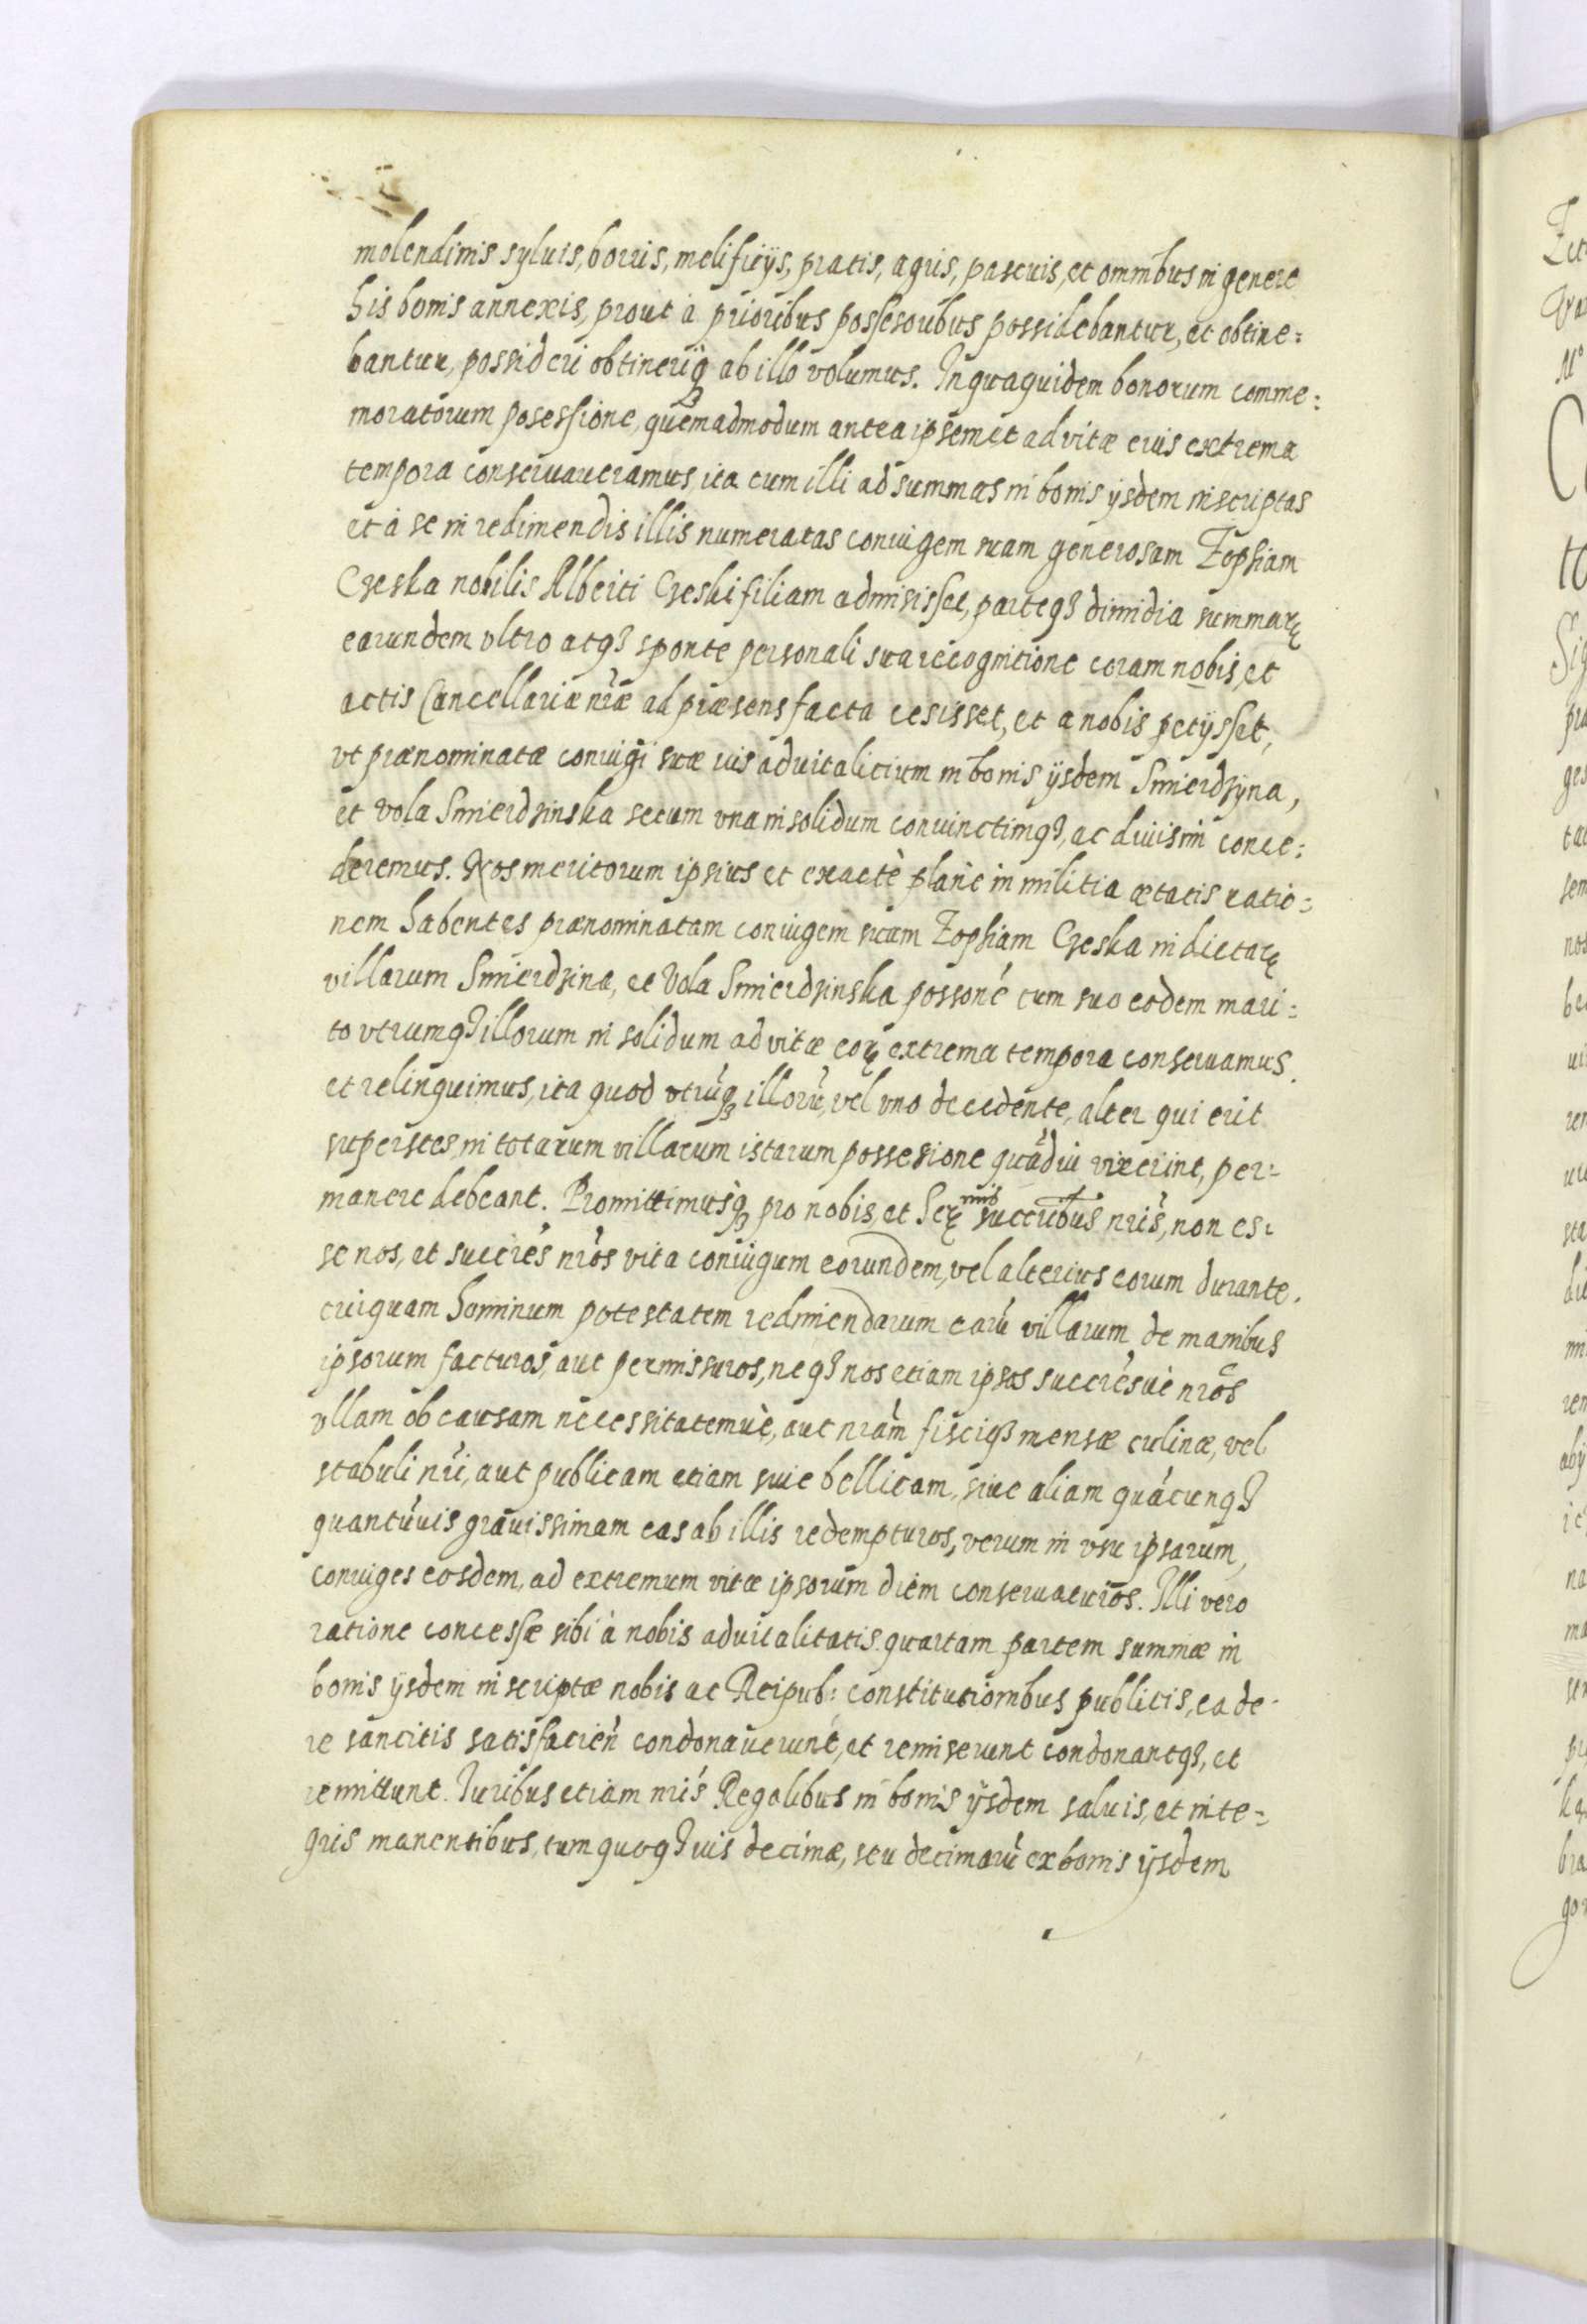 molendinis syluis, borris, melificijs, pratis, agris, pascuis, et omnibus in genere
his bonis annexis, prout à prioribus possesoribus possidebantur, et obtine=
bantur, possideri obtineriq3 ab illo volumus. In qua quidem bonorum comme=
moratorum posessione, quemadmodum antea ipsemet ad vitæ eius extrema
tempora conseruaueramus, ita cum illi ad summas in bonis ijsdem inscriptas
et à se in redimendis illis numeratas coniugem suam generosam Zophiam
Czeska nobilis Alberti Czeski filiam admisisset, parteq3 dimidia summarę
earundem vltro atq3 sponte personali sua recognitione coram nobis, et
actis Cancellariæ nr̃æ ad præsens facta cesisset, et a nobis petijsset,
vt prænominatæ coniugi suæ ius aduitalitium in bonis ijsdem Smierdzyna,
et Vola Smierdzinska secum vna in solidum coniunctimq3, ac diuisim conce=
deremus. Nos meritorum ipsius et exactè planè in militia ætatis ratio=
nem habentes prænominatam coniugem suam Zophiam Czeska in dictarę
villarum Smierdzina, et Vola Smierdzinska possoné cum suo eodem mari=
to vtrumq3 illorum in solidum ad vitæ eorę extrema tempora conseruamus
et relinquimus, ita quod vtrũq3 illorũ, vel vno decedente, alter qui erit
superstes, in totarum villarum istarum possesione quãdiu vixerint, per=
manere debeant. Promittimusq3 pro nobis, et Serę mis succribus nris, non es=
se nos, et succres nr̃os vita coniugum eorundem, vel alterius eorum durante,
cuiquam hominum potestatem redimendarum earũ villarum de manibus
ipsorum facturos, aut permissuros, neq3 nos etiam ipsos succresuè nr̃os
vllam ob causam necessitatemuè, aut nram fisciq3 mensæ culinæ, vel
stabuli nri, aut publicam etiam siue bellicam, siue aliam quãcunq3
quantũuis grauissimam eas ab illis redempturos, verum in vsu ipsarum,
coniuges eosdem, ad extremum vitæ ipsorum diem conseruaturos. Illi vero
ratione concessæ sibi à nobis aduitalitatis quartam partem summæ in
bonis ijsdem inscriptæ nobis ac Reipub: constitutionibus publicis, ea de
re sancitis satisfacien̄ condonauerunt, et remiserunt condonantq3, et
remittunt. Iuribus etiam nris Regalibus in bonis ijsdem saluis, et inte=
gris manentibus, tum quoq3 iuis decimæ, seu decimarũ ex bonis ijsdem